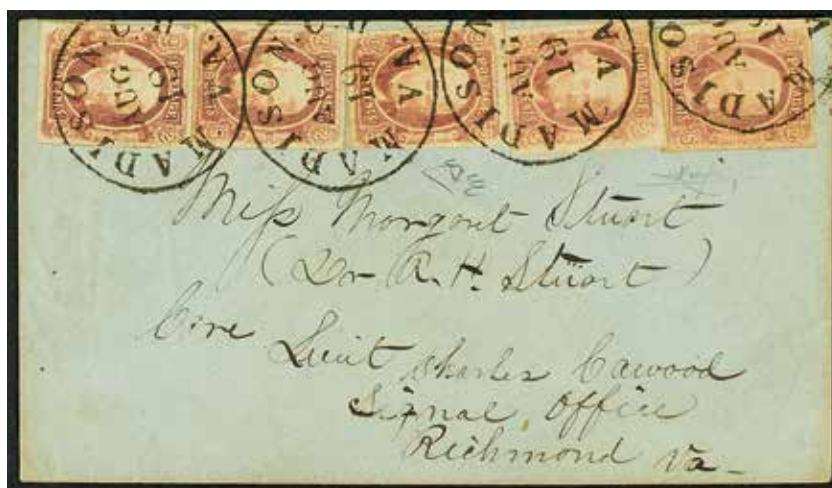 MADISON. C. VA. AUG 19
MADISON. C. VA. 19
MADISON VA AUG 19
MADISO AUG 19
Miss Margaret Stuart
(Dr R. H. Stuart)
Care
Lieut Charles Cawood
Signal Office
Richmond Va-